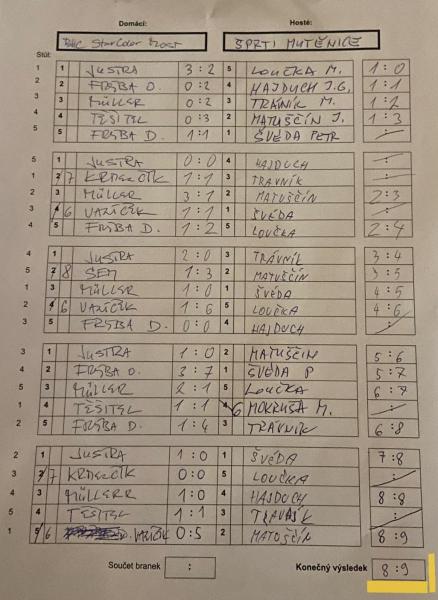 Domácí: Hosté:
BHC StarColor Most ŠPRTI MUTĚNICE
Stůl:
1 1 JUSTRA 3:2 5 LOUČKA M. 1:0
2 2 FRÝBA O. 0:2 4 HAJDUCH J.G. 1:1
3 3 MÜLLER 0:2 3 TRÁVNÍK M. 1:2
4 4 TĚŠITEL 0:3 2 MATUŠČIN J. 1:3
5 5 FRÝBA D. 1:1 1 ŠVÉDA PETR :
5 1 JUSTRA 0:0 4 HAJDUCH :
1 7 KRDEČÍK 1:1 3 TRÁVNÍK :
2 3 MÜLLER 3:1 2 MATUŠČIN 2:3
3 6 VAŘÍČÍK 1:1 1 ŠVÉDA :
4 5 FRÝBA D. 1:2 5 LOUČKA 2:4
4 1 JUSTRA 2:0 3 TRÁVNÍK 3:4
5 8 SEM 1:3 2 MATUŠČIN 3:5
1 3 MÜLLER 1:0 1 ŠVÉDA 4:5
2 6 VAŘÍČÍK 1:6 5 LOUČKA 4:6
3 5 FRÝBA D. 0:0 4 HAJDUCH :
3 1 JUSTRA 1:0 2 MATUŠČIN 5:6
4 2 FRÝBA O. 3:7 1 ŠVÉDA P 5:7
5 3 MÜLLER 2:1 5 LOUČKA 6:7
1 4 TĚŠITEL 1:1 6 MOKRUŠA M. :
2 5 FRÝBA D. 1:4 3 TRÁVNÍK 6:8
2 1 JUSTRA 1:0 1 ŠVÉDA 7:8
3 7 KRDEČÍK 0:0 5 LOUČKA :
4 3 MÜLLER 1:0 4 HAJDUCH 8:8
5 4 TĚSITEL 1:1 3 TRÁVNÍK :
1 6 VAŘÍČÍK 0:5 2 MATUŠČIN 8:9
Součet branek : Konečný výsledek 8:9